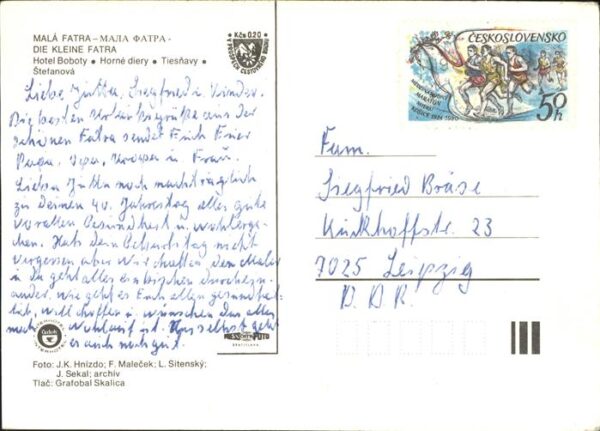 MALÁ FATRA – МАЛА ФАТРА •
DIE KLEINE FATRA
Hotel Boboty • Horné diery • Tiesňavy •
Štefanová
Kčs 0,20
Liebe Jutta, Siegfried u. Kinder.
Die besten Urlaubsgrüße aus der
schönen Fatra sendet Euch Euer
Papa, Opa, u. Frau.
Liebe Jutta noch nachträglich
zu Deinen 40. Jahrestag alles gute
vorallen Gesundheit u. Wohlerge-
hen. Hab Dein Geburtstag nicht
vergessen aber wir hatten den Maler
in Du geht alles ein bischen durchein-
ander. Wie geht es Euch allen gesundheit-
lich, will hoffen u. wünschen das alles
noch Wohlauf ist. Uns selbst geht
es auch noch gut.
Foto: J.K. Hnízdo; F. Maleček; L. Sitenský;
J. Sekal; archív
Tlač: Grafobal Skalica
PRESSFOTO
BRATISLAVA
Čedok
INTERHOTEL
ČESKOSLOVENSKO
MEDZINÁRODNÝ
MARATÓN
MIERU
KOŠICE 1924-1980
50 h
Fam.
Siegfried Bräse
Kirchhoffstr. 23
7025 Leipzig
D. D. R.